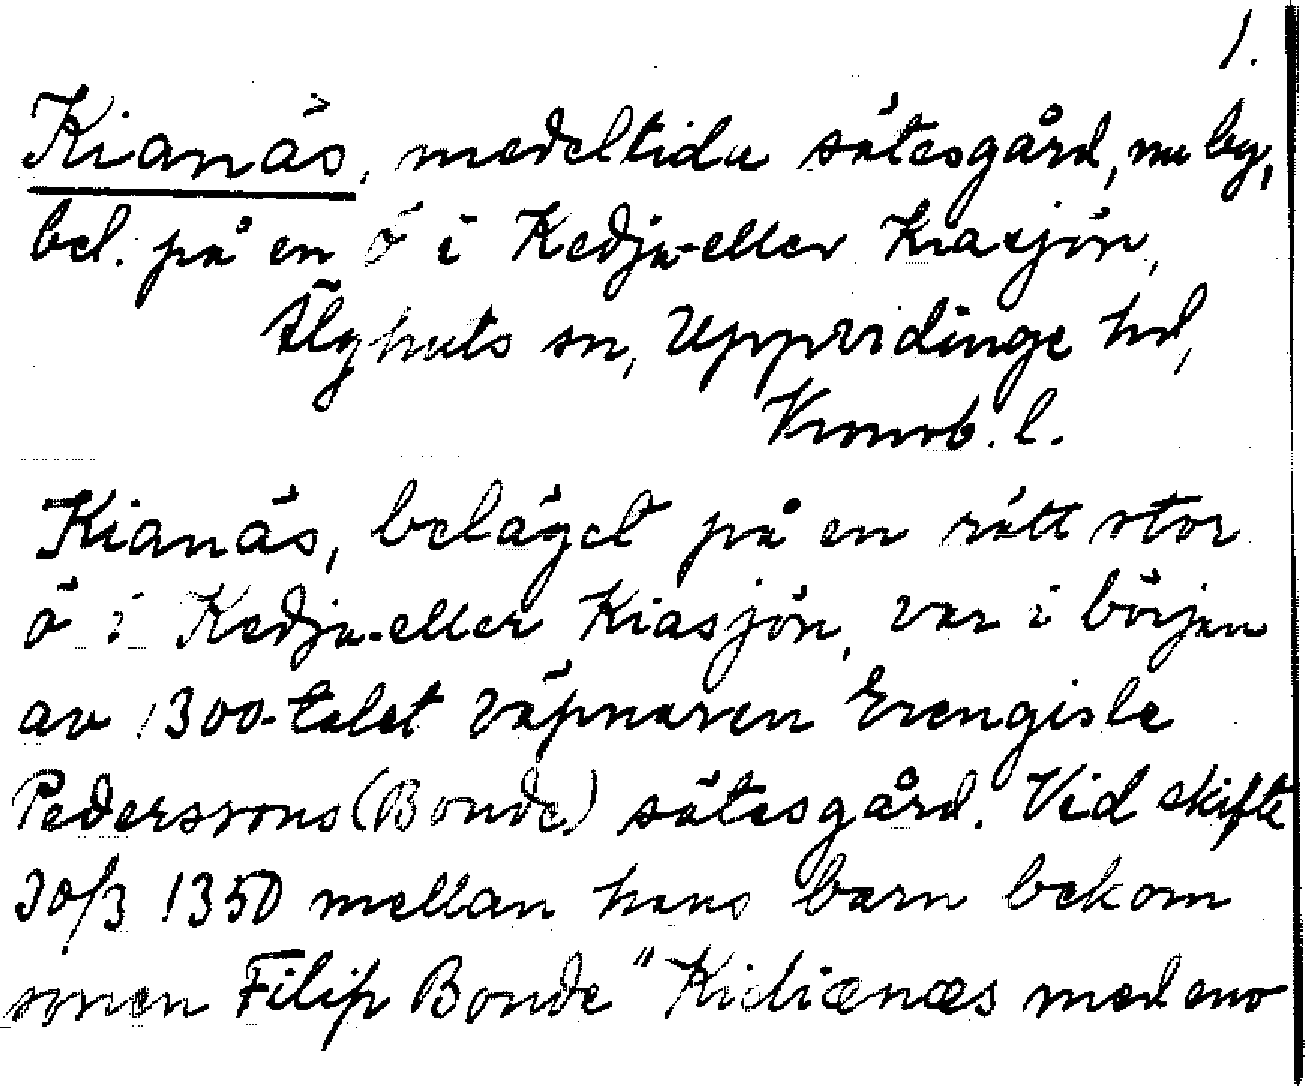 1.
Kianäs, medeltida sätesgård, nu by,
bel. på en ö i Kedju-eller Kiasjön,
Älghults sn, Uppvidinge hd,
Kronob. l.
Kianäs, beläget på en rätt stor
ö i Kedju-eller Kiasjön, var i början
av 1300-talet väpnaren Erengisle
Pederssons (Bonde) sätesgård. Vid skifte
30/3 1350 mellan hans barn bekom
sonen Filip Bonde "Kidiænæs med